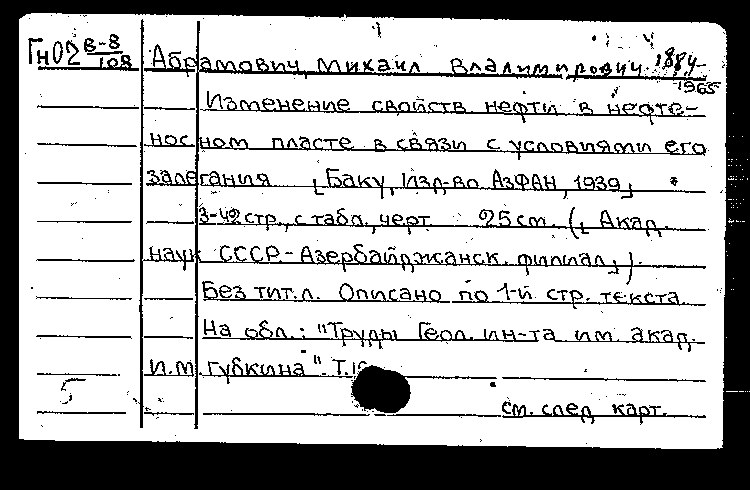 Гн02 в-8/108 Абрамович, Михаил Владимирович. 1884-
1965
Изменение свойств нефти в нефте-
носном пласте в связи с условиями его
залегания [Баку, Изд-во АзФАН, 1939]
3-42 стр., с табл., черт. 25 см. ([Акад.
наук СССР.-Азербайджанск. филиал]).
Без тит. л. Описано по 1-й стр. текста
На обл.: "Труды Геол. ин-та им. акад.
И.М. Губкина". Т.
5
см. след. карт.